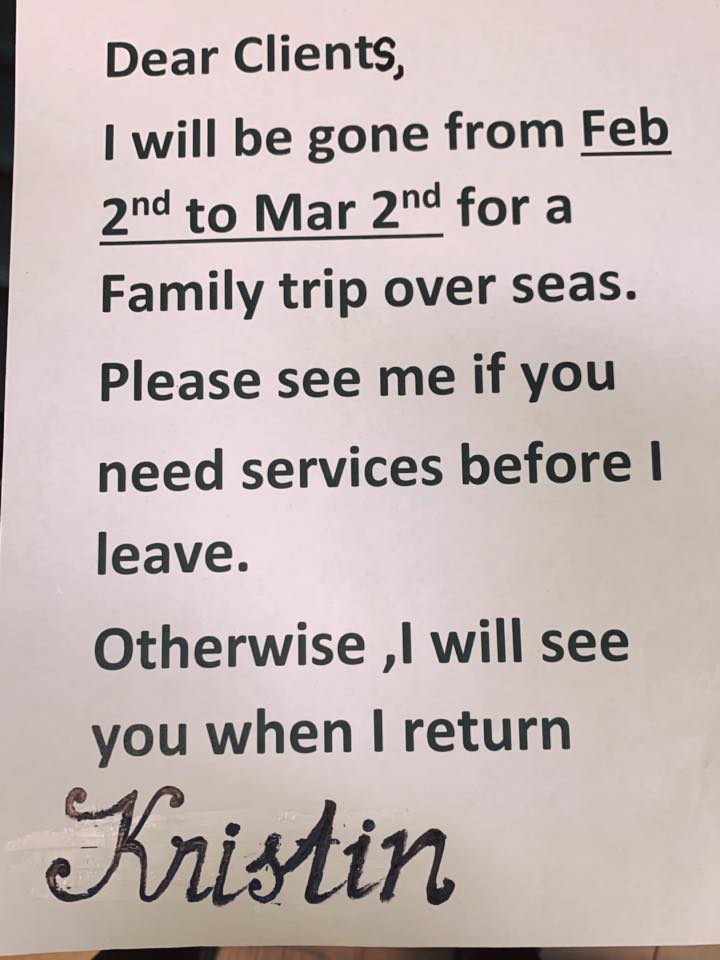 Dear Clients,
I will be gone from Feb
2nd to Mar 2nd for a
Family trip over seas.
Please see me if you
need services before I
leave.
Otherwise ,I will see
you when I return
Kristin